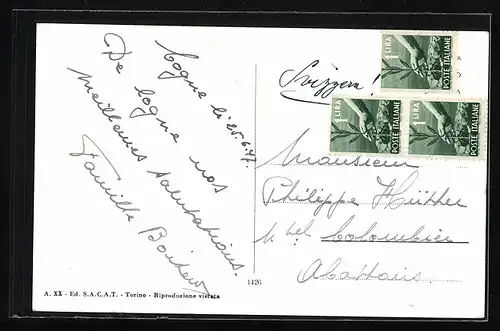 Cogne li 25.6.47.
De Cogne nos
meilleures salutations.
Famille
Svizzera!
1 LIRA
POSTE ITALIANE
1 LIRA
POSTE ITALIANE
1 LIRA
POSTE ITALIANE
Monsieur
Philippe
Colombier
A. XX - Ed. S.A.C.A.T. - Torino - Riproduzione vietata
1426